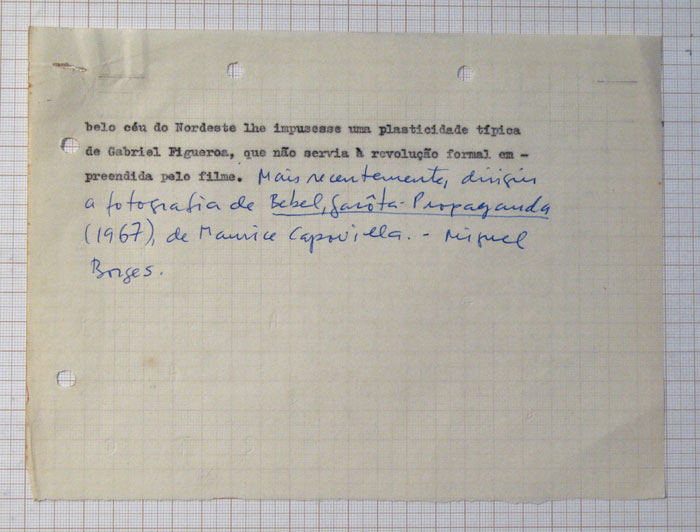 belo céu do Nordeste lhe impusesse uma plasticidade típica
de Gabriel Figueroa, que não servia à revolução formal em -
preendida pelo filme. Mais recentemente, dirigiu
a fotografia de Bebel, Garôta-Propaganda
(1967), de Maurice Capovilla. - Miguel
Borges.